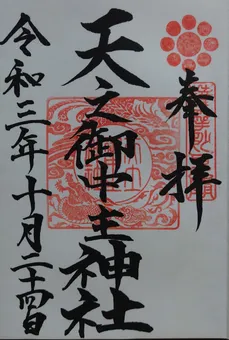 奉拝
天之御中主神社
令和三年十月二十四日